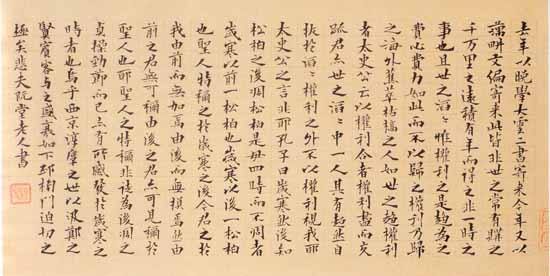 去年以晩學大雲二書寄來今年又以
藕畊文編寄來此皆非世之常有購之
千万里之遠積有年而得之非一時之
事也且世之滔〻惟權利之是趨爲之
費心費力如此而不以歸之權利乃歸
之海外蕉萃枯槁之人如世之趨權利
者太史公云以權利合者權利盡而交
踈君亦世之滔〻中一人其有超然自
拔於滔〻權利之外不以權利視我耶
太史公之言非耶孔子曰歲寒然後知
松栢之後凋松栢是毌四時而不凋者
歲寒以前一松栢也歲寒以後一松栢
也聖人特稱之於歲寒之後今君之於
我由前而無加焉由後而無損焉然由
前之君無可稱由後之君亦可見稱於
聖人也耶聖人之特稱非徒爲後凋之
貞操勁節而已亦有所感發於歲寒之
時者也烏乎西京淳厚之世以汲鄭之
賢賓客與之盛衰如下邳榜門迫切之
極矣悲夫阮堂老人書